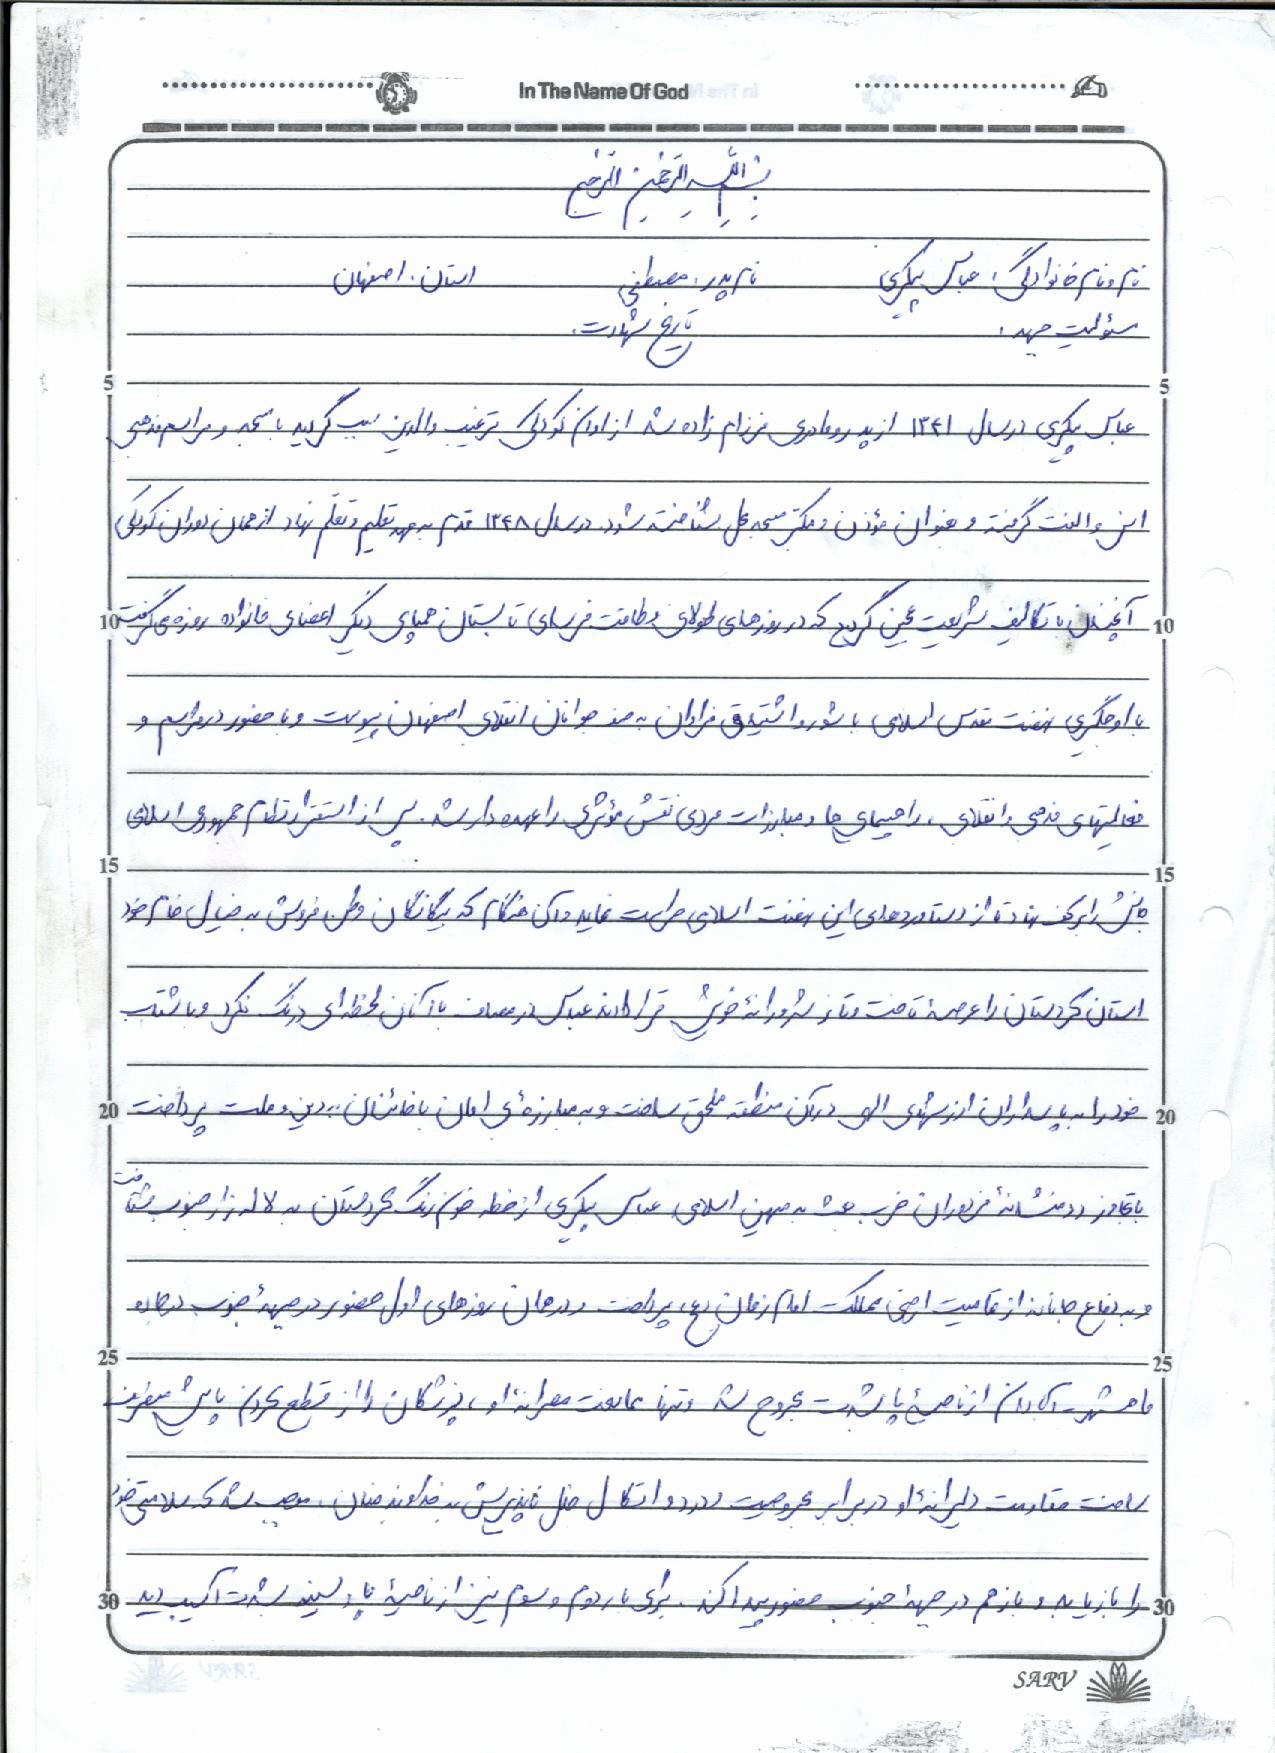 In The Name Of God
بسم الله الرحمن الرحیم
نام و نام خانوادگی: عباس پیکری نام پدر: مصطفی استان: اصفهان
مسئولیت جبهه: تاریخ شهادت:
عباس پیکری در سال ۱۳۴۱ از پدر و مادری فرزام زاده شد از اوان کودکی ترغیب والدین سبب گردید با مسجد و مراسم مذهبی
انس و الفت گرفته و بعنوان مؤذن و مکبر مسجد محل شناخته شود. در سال ۱۳۴۸ قدم به مهد تعلیم و تعلم نهاد از همان دوران کودکی
آنچنان با تکالیف شریعت عجین گردید که در روزهای طولانی و طاقت فرسای تابستان همپای دیگر اعضای خانواده روزه می گرفت
با اوجگیری نهضت مقدس اسلامی با شور و اشتیاق فراوان به صف جوانان انقلابی اصفهان پیوست و با حضور در مراسم و
فعالیتهای مذهبی و انقلابی، راهپیمایی ها و مبارزات مردمی نقش مؤثری را عهده دار شد. پس از استقرار نظام جمهوری اسلامی
جانش را بر کف نهاد تا از دستاوردهای این نهضت اسلامی حراست نماید و آن هنگام که بیگانگان وطن فروش به خیال خام خود
استان کردستان را عرصهٔ تاخت و تاز شرورانهٔ خویش قرار دادند عباس در مصاف با آنان لحظه ای درنگ نکرد و با شتاب
خود را به پاسداران ارزشهای الهی در آن منطقه ملحق ساخت و به مبارزه ی بی امان با خائنان به دین و ملت پرداخت
با تجاوز ددمنشانهٔ مزدوران حزب بعث به میهن اسلامی، عباس پیکری از خطه خونرنگ کردستان به لاله زار جنوب شتافت
و به دفاع جانانه از تمامیت ارضی مملکت امام زمان (عج) پرداخت و در همان روزهای اول حضور در جبههٔ جنوب در جاده
ماهشهر - آبادان از ناحیهٔ پا بشدت مجروح شد و تنها ممانعت مصرانهٔ او، پزشکان را از قطع کردن پایش منصرف
ساخت مقاومت دلیرانهٔ او در برابر مجروحیت و درد و اتکال خلل ناپذیرش به خداوند منان، موجب شد که سلامتی خود
را باز یابد و باز هم در جبههٔ جنوب حضور پیدا کند. برای بار دوم و سوم نیز از ناحیهٔ پا و سینه بشدت آسیب دید
5
10
15
20
25
30
SARV